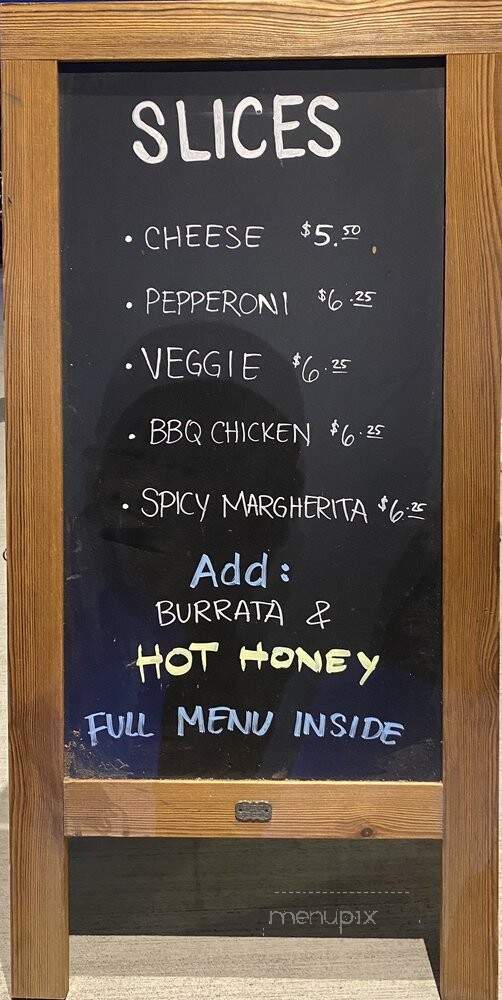 SLICES
• CHEESE $5.50
• PEPPERONI $6.25
• VEGGIE $6.25
• BBQ CHICKEN $6.25
• SPICY MARGHERITA $6.25
Add:
BURRATA &
HOT HONEY
FULL MENU INSIDE
menupix